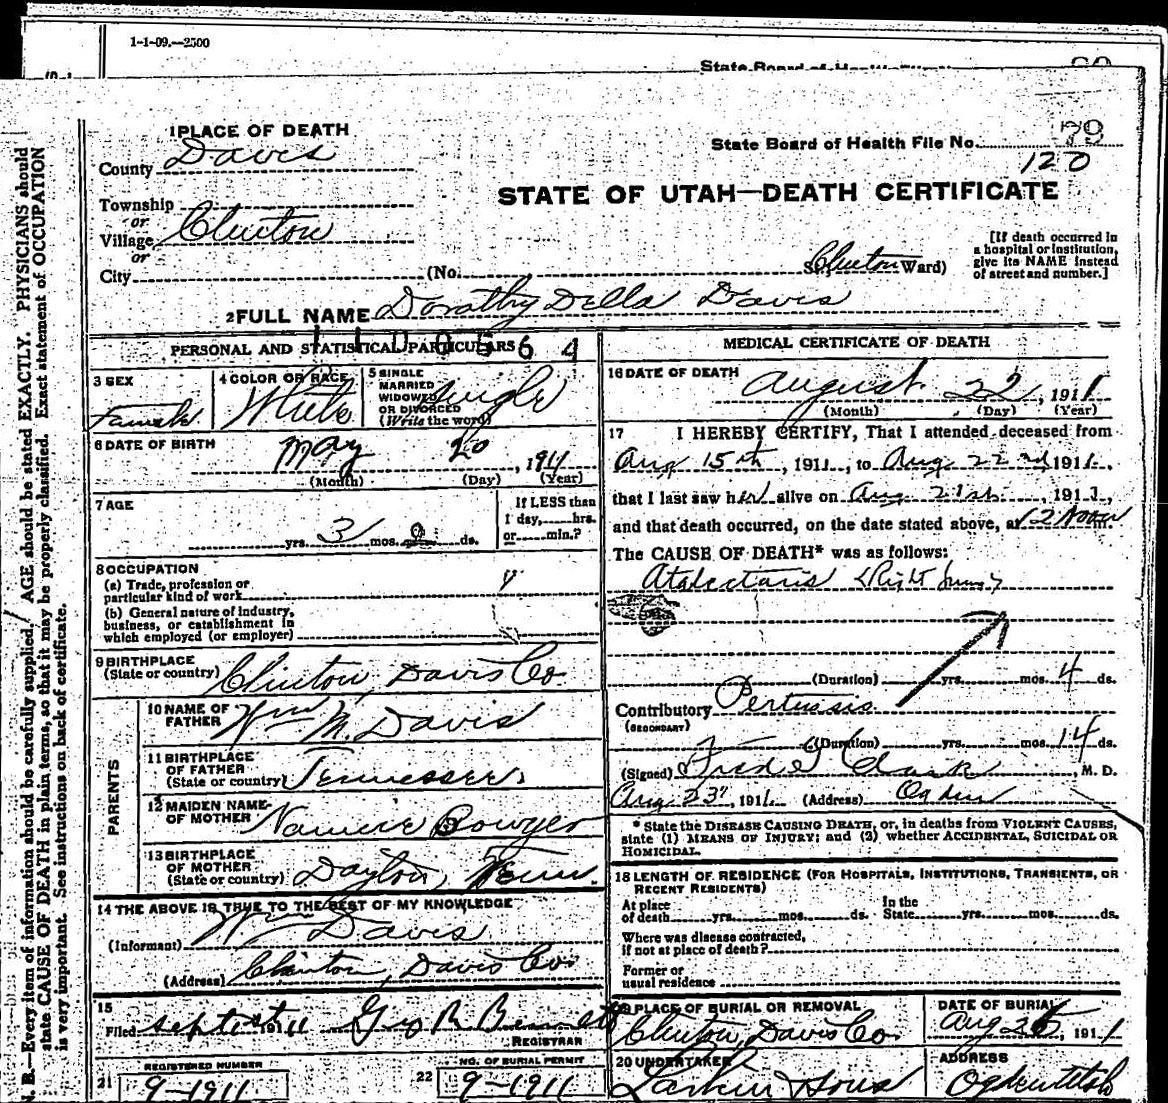 1-1-09.—2500
State Board of Health
1 PLACE OF DEATH
State Board of Health File No. 79
120
County Davis
STATE OF UTAH—DEATH CERTIFICATE
Township
or
Village Clinton
or
City (No. Clinton Ward)
[If death occurred in
a hospital or institution,
give its NAME instead
of street and number.]
2 FULL NAME Dorathy Della Davis
PERSONAL AND STATISTICAL PARTICULARS
3 SEX
4 COLOR OR RACE White
5 SINGLE
MARRIED
WIDOWED
OR DIVORCED
(Write the word) Single
6 DATE OF BIRTH
May 20, 1911
(Month) (Day) (Year)
7 AGE
yrs. 3 mos. 0 ds.
If LESS than
1 day, hrs.
or min.?
8 OCCUPATION
(a) Trade, profession or
particular kind of work
(b) General nature of industry,
business, or establishment in
which employed (or employer)
9 BIRTHPLACE
(State or country) Clinton, Davis Co.
PARENTS
10 NAME OF
FATHER Wm M. Davis
11 BIRTHPLACE
OF FATHER
(State or country) Tennessee
12 MAIDEN NAME
OF MOTHER Bowyer
13 BIRTHPLACE
OF MOTHER
(State or country) Dayton, Tenn.
14 THE ABOVE IS TRUE TO THE BEST OF MY KNOWLEDGE
(Informant) Wm Davis
(Address) Clinton, Davis Co.
15
Filed Sept 1911 Geo R Bennett
REGISTRAR
REGISTERED NUMBER
21 9-1911
NO. OF BURIAL PERMIT
22 9-1911
MEDICAL CERTIFICATE OF DEATH
16 DATE OF DEATH
August 22, 1911
(Month) (Day) (Year)
17 I HEREBY CERTIFY, That I attended deceased from
Aug 15th, 1911, to Aug 22nd 1911,
that I last saw her alive on Aug 21st, 1911,
and that death occurred, on the date stated above, at 12 Noon
The CAUSE OF DEATH* was as follows:
Atalectaris (Right Lung)
(Duration) yrs. mos. 4 ds.
Contributory Pertussis
(SECONDARY)
(Duration) yrs. mos. 14 ds.
(Signed) Fred G Clark, M. D.
Aug 23, 1911. (Address) Ogden
* State the DISEASE CAUSING DEATH, or, in deaths from VIOLENT CAUSES,
state (1) MEANS OF INJURY; and (2) whether ACCIDENTAL, SUICIDAL OR
HOMICIDAL.
18 LENGTH OF RESIDENCE (FOR HOSPITALS, INSTITUTIONS, TRANSIENTS, OR
RECENT RESIDENTS)
At place
of death yrs. mos. ds.
In the
State yrs. mos. ds.
Where was disease contracted,
if not at place of death?
Former or
usual residence
19 PLACE OF BURIAL OR REMOVAL
Clinton, Davis Co.
DATE OF BURIAL
Aug 25, 1911
20 UNDERTAKER
Larkin & Sons
ADDRESS
Ogden Utah
N. B.—Every item of information should be carefully supplied. AGE should be stated EXACTLY. PHYSICIANS should
state CAUSE OF DEATH in plain terms, so that it may be properly classified. Exact statement of OCCUPATION
is very important. See instructions on back of certificate.